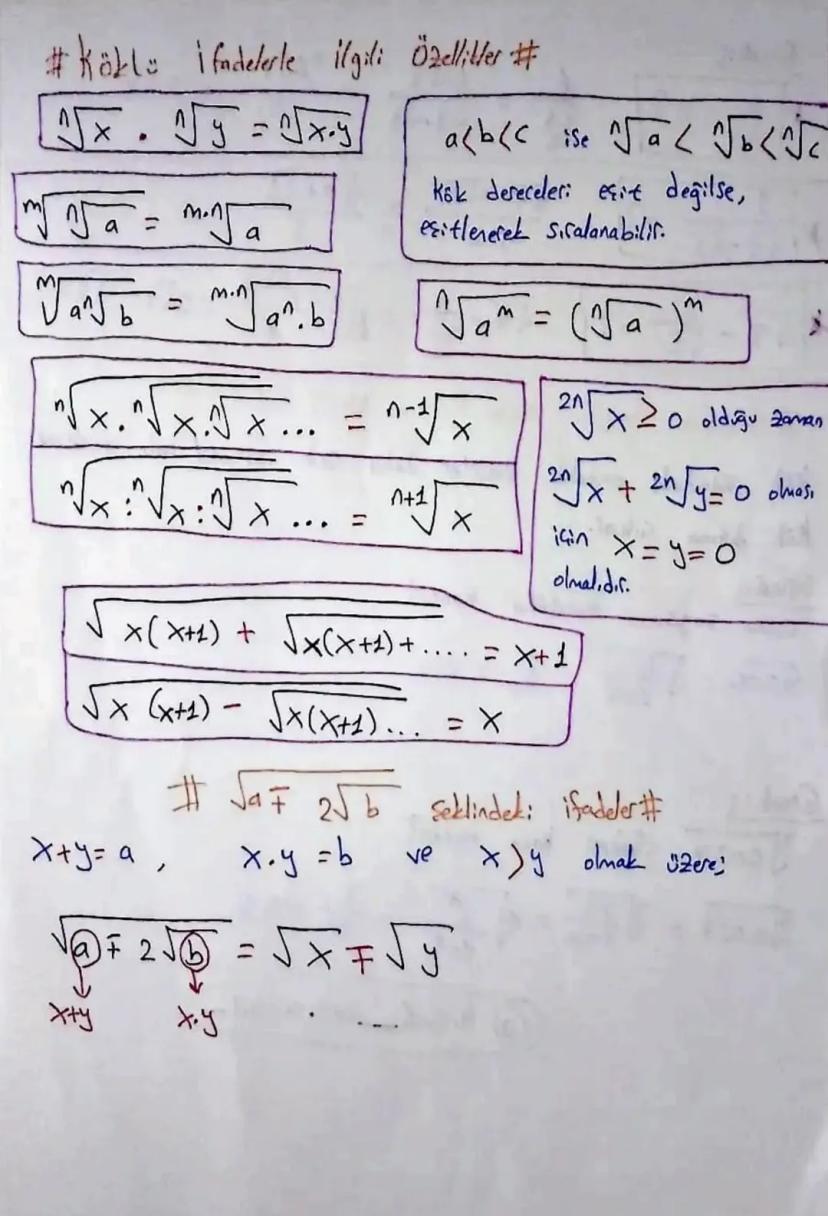 # Köklü İfadelerle ilgili Özellikler #
ⁿ√x . ⁿ√y = ⁿ√x.y
ᵐ√ⁿ√a = ᵐ·ⁿ√a
ᵐ√aⁿ√b = ᵐ·ⁿ√aⁿ.b
a<b<c ise ⁿ√a < ⁿ√b < ⁿ√c
Kök dereceleri eşit değilse,
eşitlenerek sıralanabilir.
ⁿ√aᵐ = (ⁿ√a)ᵐ
ⁿ√x.ⁿ√x.ⁿ√x... = ⁿ⁻¹√x
ⁿ√x:ⁿ√x:ⁿ√x... = ⁿ⁺¹√x
²ⁿ√x ≥ 0 olduğu zaman
²ⁿ√x + ²ⁿ√y = 0 olması
için x = y = 0
olmalıdır.
√x(x+1) + √x(x+1)+.... = x+1
√x(x+1) - √x(x+1)... = x
# √a∓2√b şeklindeki ifadeler #
x+y= a , x.y =b ve x>y olmak üzere;
√a∓2√b = √x ∓ √y
x+y x.y